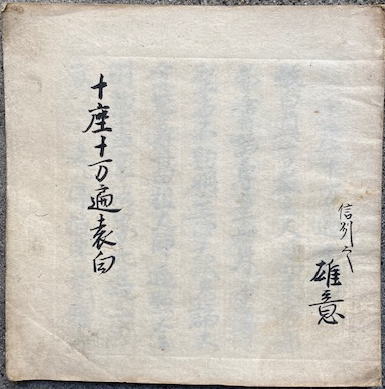 十座十万遍表白
信
雄意